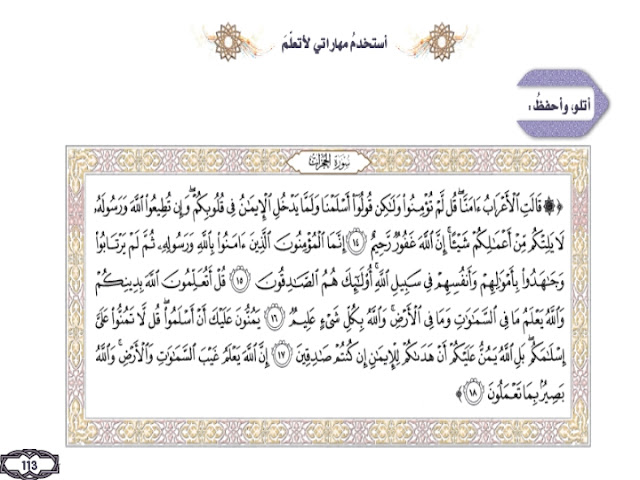 أستخدمُ مهاراتي لأتعلّمَ
أتلو، وأحفظُ :
سُورَةُ الحُجُرَاتِ
﴿۞ قَالَتِ ٱلْأَعْرَابُ ءَامَنَّا ۖ قُل لَّمْ تُؤْمِنُوا۟ وَلَٰكِن قُولُوٓا۟ أَسْلَمْنَا وَلَمَّا يَدْخُلِ ٱلْإِيمَٰنُ فِى قُلُوبِكُمْ ۖ وَإِن تُطِيعُوا۟ ٱللَّهَ وَرَسُولَهُۥ
لَا يَلِتْكُم مِّنْ أَعْمَٰلِكُمْ شَيْـًٔا ۚ إِنَّ ٱللَّهَ غَفُورٌ رَّحِيمٌ ١٤ إِنَّمَا ٱلْمُؤْمِنُونَ ٱلَّذِينَ ءَامَنُوا۟ بِٱللَّهِ وَرَسُولِهِۦ ثُمَّ لَمْ يَرْتَابُوا۟
وَجَٰهَدُوا۟ بِأَمْوَٰلِهِمْ وَأَنفُسِهِمْ فِى سَبِيلِ ٱللَّهِ ۚ أُو۟لَٰٓئِكَ هُمُ ٱلصَّٰدِقُونَ ١٥ قُلْ أَتُعَلِّمُونَ ٱللَّهَ بِدِينِكُمْ
وَٱللَّهُ يَعْلَمُ مَا فِى ٱلسَّمَٰوَٰتِ وَمَا فِى ٱلْأَرْضِ ۚ وَٱللَّهُ بِكُلِّ شَىْءٍ عَلِيمٌ ١٦ يَمُنُّونَ عَلَيْكَ أَنْ أَسْلَمُوا۟ ۖ قُل لَّا تَمُنُّوا۟ عَلَىَّ
إِسْلَٰمَكُم ۖ بَلِ ٱللَّهُ يَمُنُّ عَلَيْكُمْ أَنْ هَدَىٰكُمْ لِلْإِيمَٰنِ إِن كُنتُمْ صَٰدِقِينَ ١٧ إِنَّ ٱللَّهَ يَعْلَمُ غَيْبَ ٱلسَّمَٰوَٰتِ وَٱلْأَرْضِ ۚ وَٱللَّهُ
بَصِيرٌۢ بِمَا تَعْمَلُونَ ١٨﴾
113